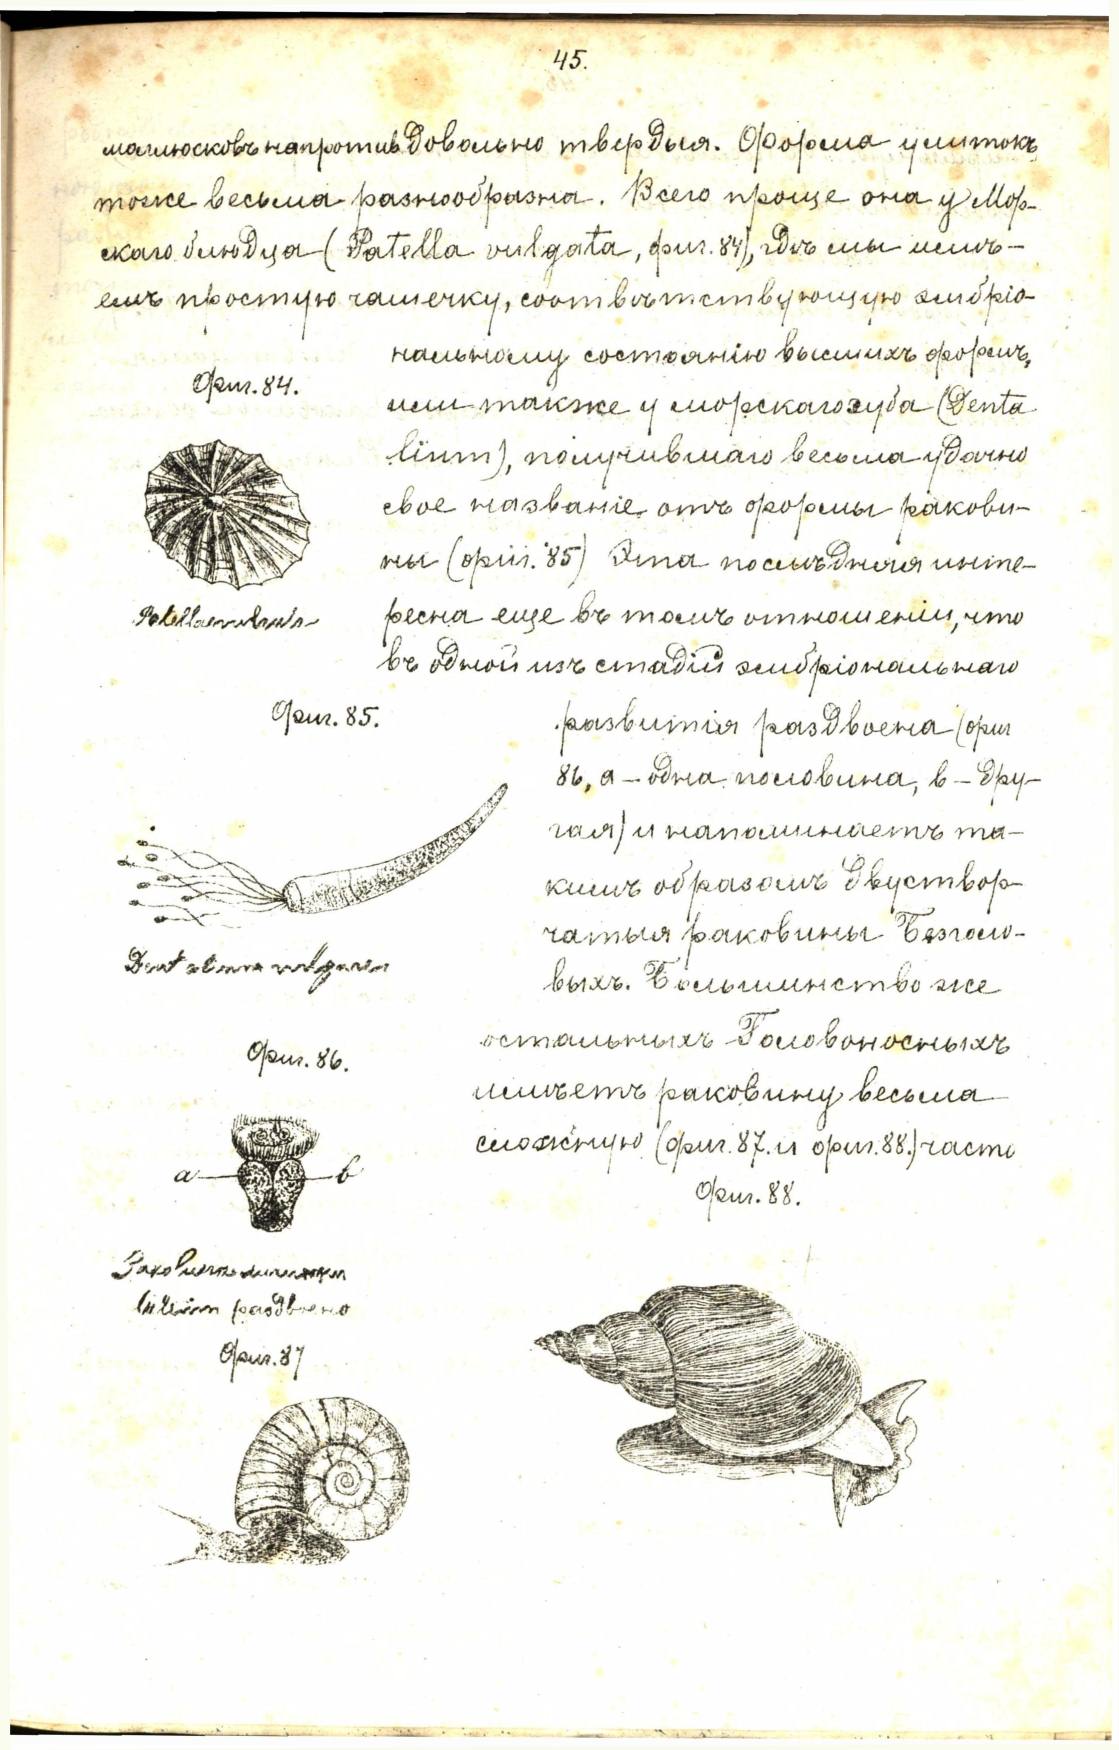 45.
моллюсковъ напротивъ довольно твердыя. Форма улитокъ
тоже весьма разнообразна. Всего проще она у Мор-
скаго блюдца (Patella vulgata, фиг. 84), гдѣ мы имѣ-
емъ простую чашечку, соотвѣтствующую эмбріо-
нальному состоянію высшихъ формъ,
или также у морскаго зуба (Denta
lium), получившаго весьма удачно
свое названіе отъ формы ракови-
ны (фиг. 85) Эта послѣдняя инте-
ресна еще въ томъ отношеніи, что
въ одной изъ стадій эмбріональнаго
развитія раздвоена (фиг
86, а – одна половина, в – дру-
гая) и напоминаетъ та-
кимъ образомъ двуствор-
чатыя раковины Безголо-
выхъ. Большинство же
остальныхъ Головоносныхъ
имѣетъ раковину весьма
сложную (фиг. 87. и фиг. 88.) часто
Фиг. 84.
Patella vulgata
Фиг. 85.
Dentalium vulgare
Фиг. 86.
а
в
Раковина
раздвоено
Фиг. 87
Фиг. 88.